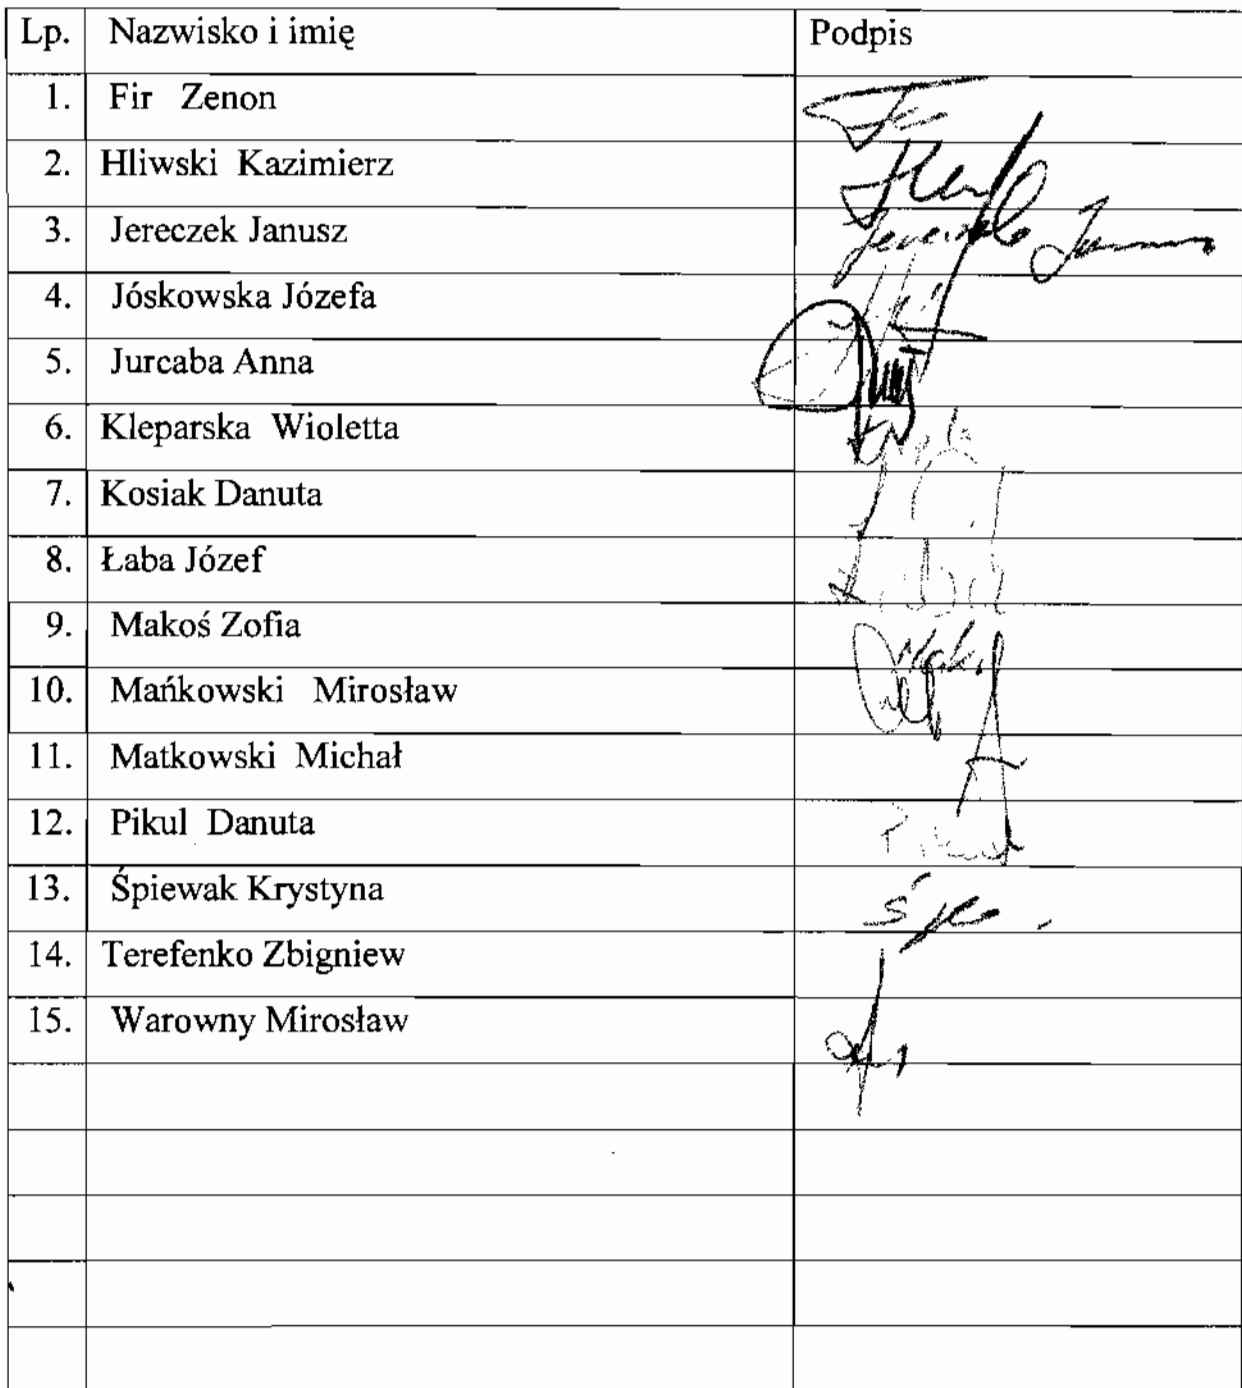 Lp. Nazwisko i imię Podpis
1. Fir Zenon
2. Hliwski Kazimierz
3. Jereczek Janusz
4. Jóskowska Józefa
5. Jurcaba Anna
6. Kleparska Wioletta
7. Kosiak Danuta
8. Łaba Józef
9. Makoś Zofia
10. Mańkowski Mirosław
11. Matkowski Michał
12. Pikul Danuta
13. Śpiewak Krystyna
14. Terefenko Zbigniew
15. Warowny Mirosław